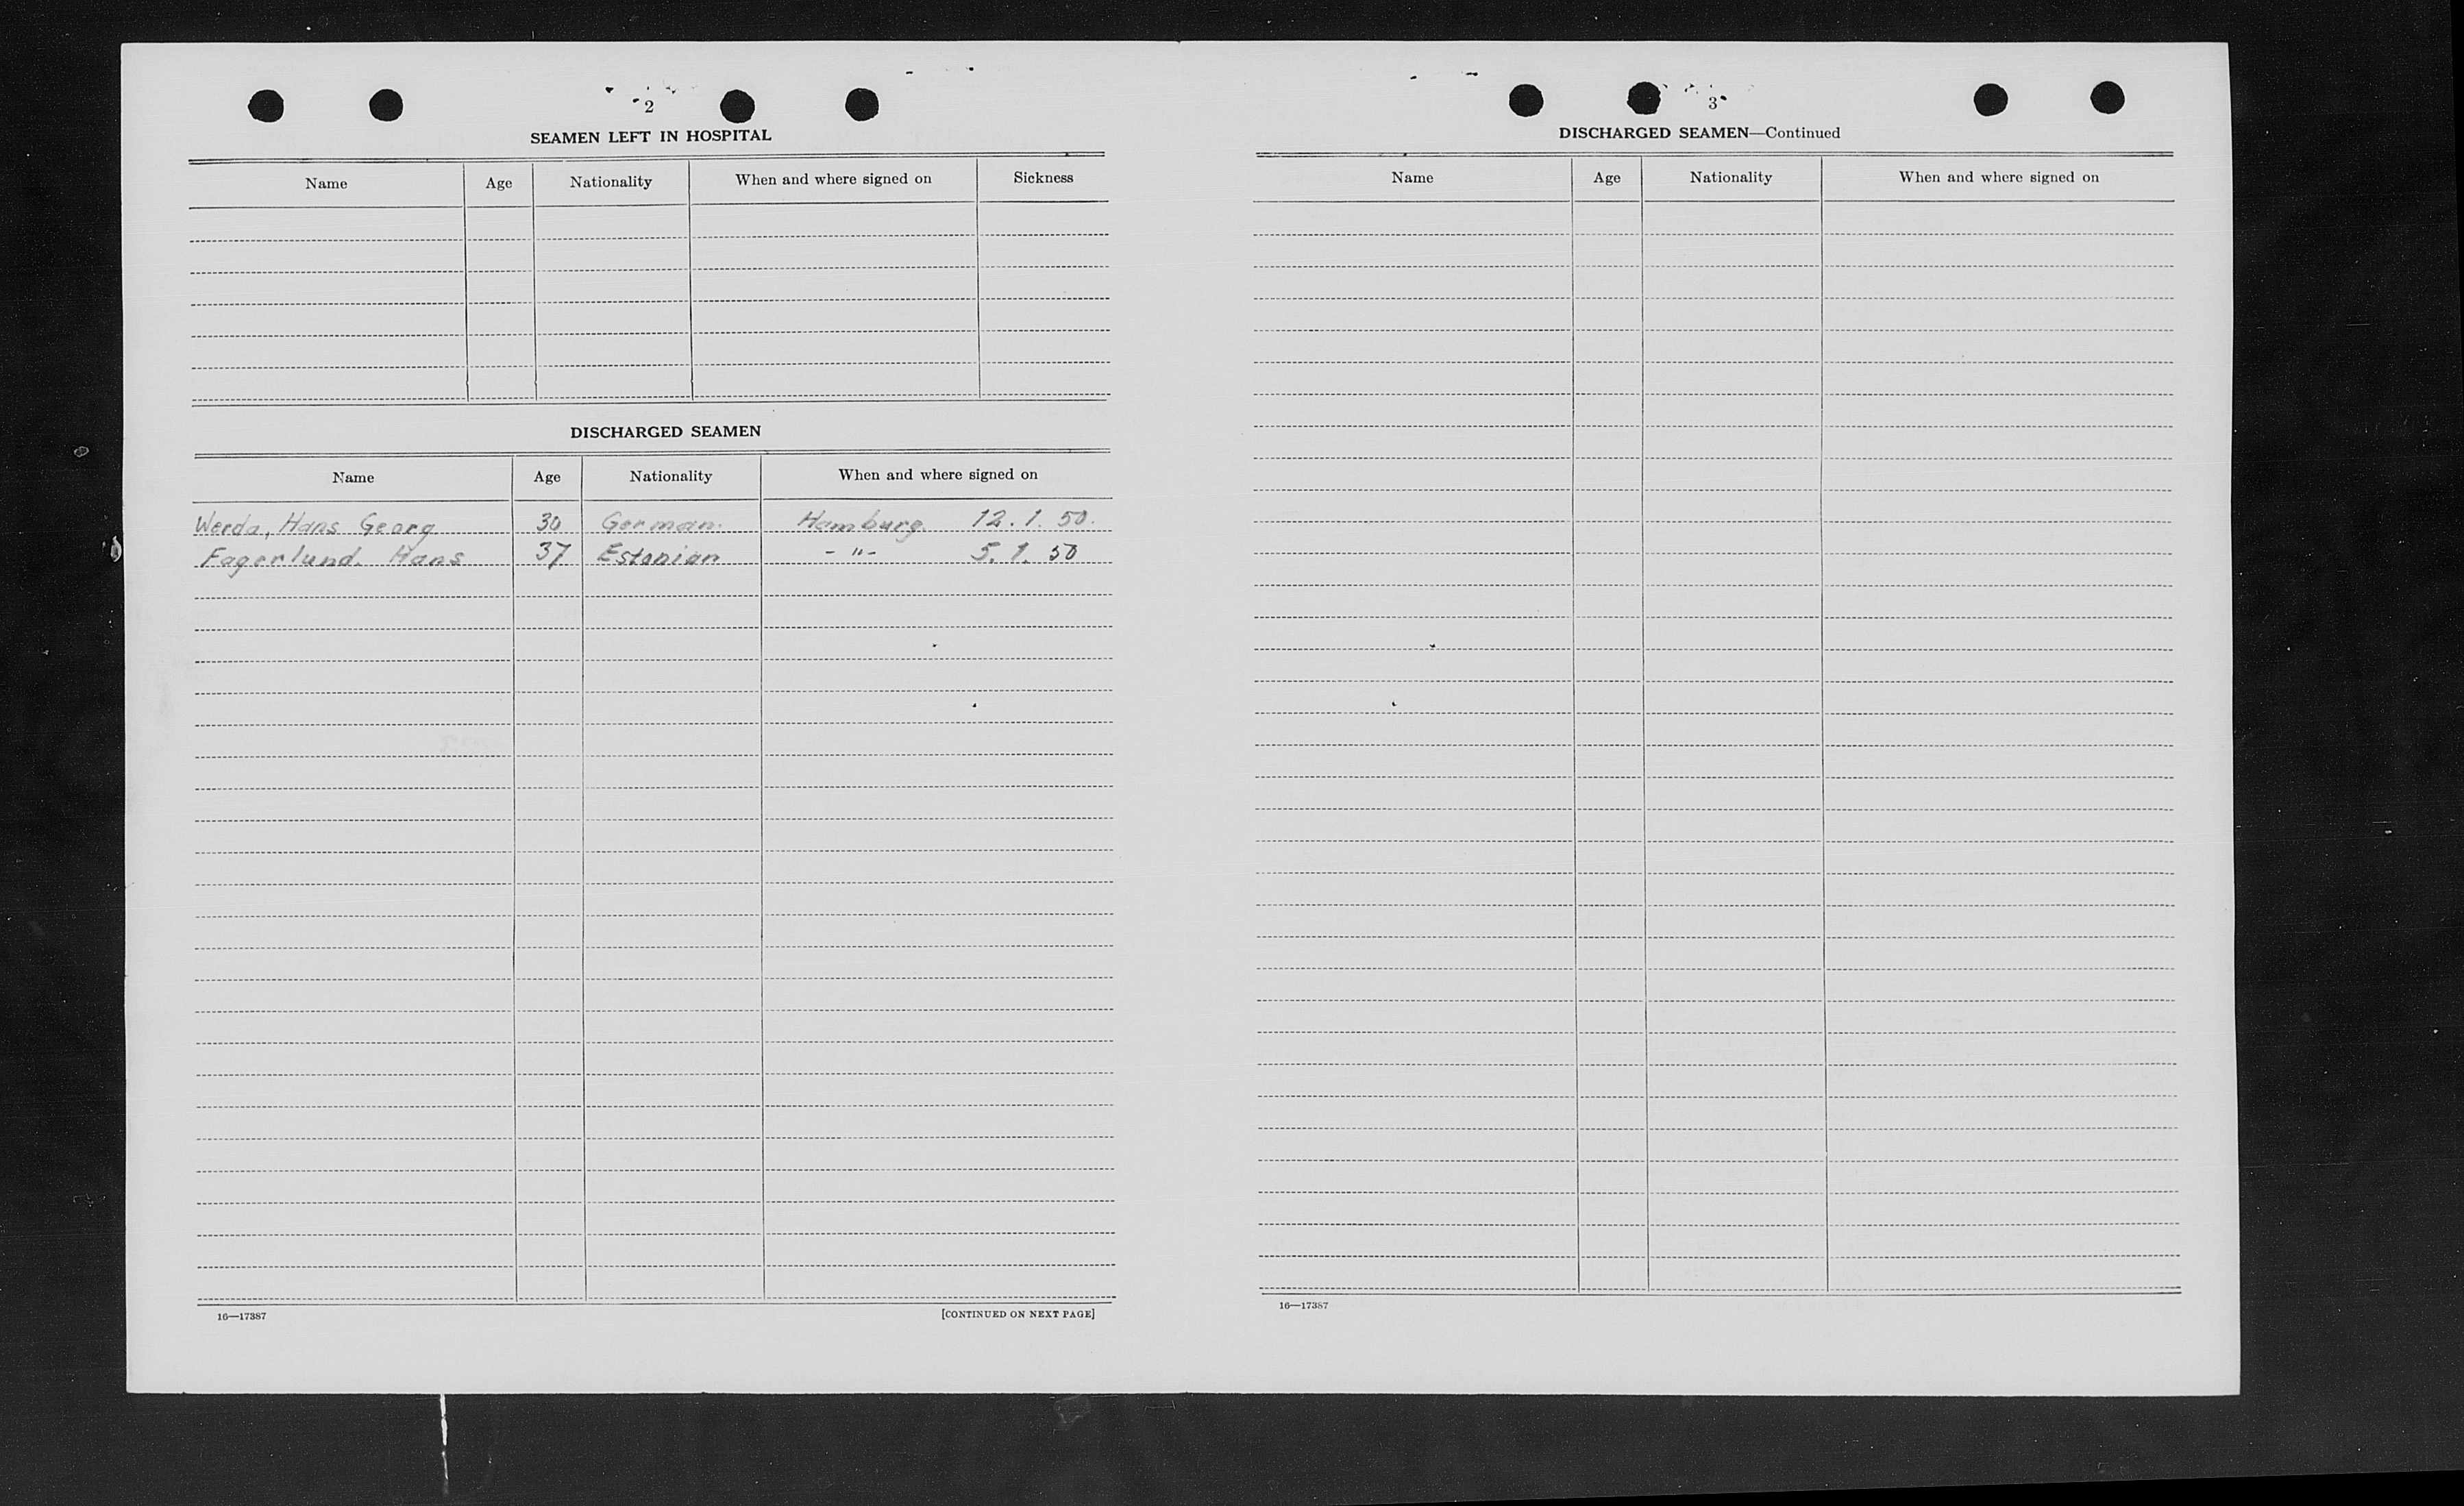 2
SEAMEN LEFT IN HOSPITAL
Name Age Nationality When and where signed on Sickness
DISCHARGED SEAMEN
Name Age Nationality When and where signed on
Werda, Hans Georg 30 German. Hamburg. 12. 1. 50.
Fagerlund. Hans 37 Estonian - " - 5. 1. 50
16—17387 [CONTINUED ON NEXT PAGE]
3
DISCHARGED SEAMEN—Continued
Name Age Nationality When and where signed on
16—17387